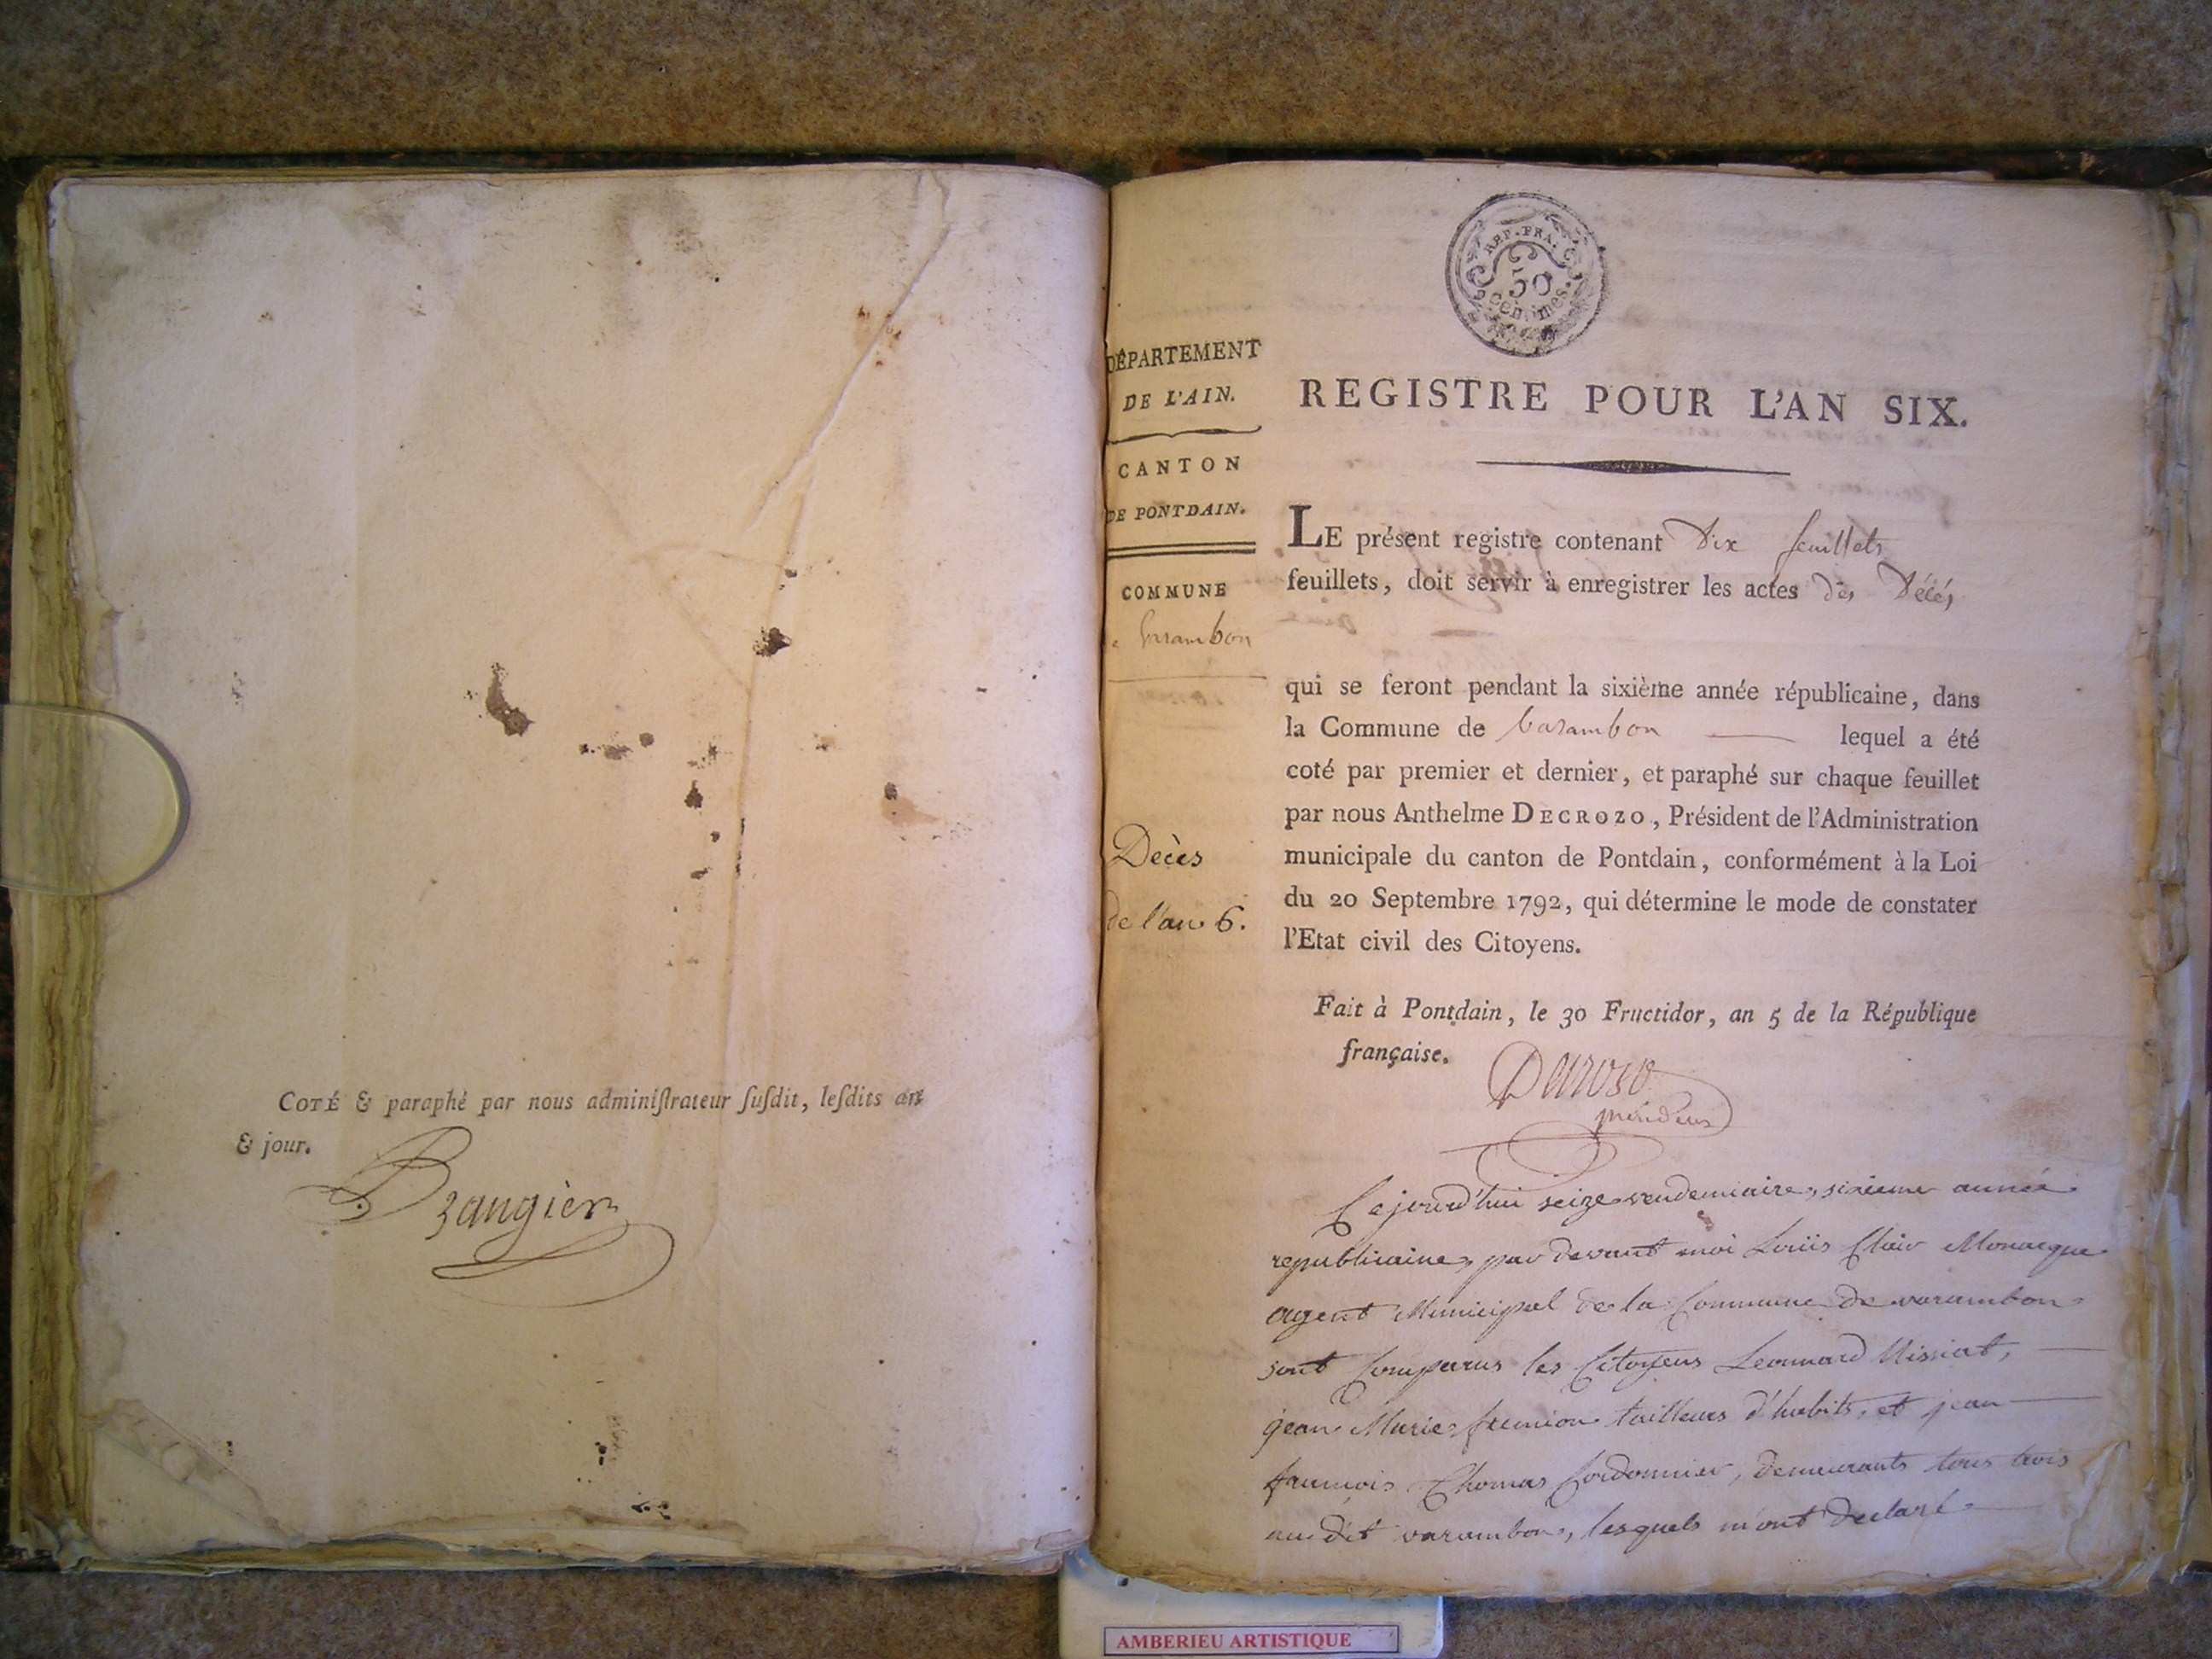 COTÉ & paraphé par nous adminiſtrateur ſuſdit, leſdits an
& jour.
Brangier
REP. FRA.
50
centimes.
DÉPARTEMENT
DE L'AIN.
CANTON
DE PONTDAIN.
COMMUNE
Varambon
Decès
de l'an 6.
REGISTRE POUR L'AN SIX.
LE présent registre contenant Dix feuillets
feuillets, doit servir à enregistrer les actes des Décés
qui se feront pendant la sixième année républicaine, dans
la Commune de Varambon lequel a été
coté par premier et dernier, et paraphé sur chaque feuillet
par nous Anthelme DECROZO, Président de l'Administration
municipale du canton de Pontdain, conformément à la Loi
du 20 Septembre 1792, qui détermine le mode de constater
l'Etat civil des Citoyens.
Fait à Pontdain, le 30 Fructidor, an 5 de la République
française.
Decroso
president
Cejourd'hui seize vendemiaire, sixieme année
republicaine, par devant moi Louis Clair Monacque
agent Municipal de la Commune de varambon
sont Comparus les Citoyens Leonnard Missiat,
jean Marie tailleurs d'habits, et jean
francois Thomas Cordonnier, demeurants tous trois
au dit varambon, lesquels m'ont declaré
AMBERIEU ARTISTIQUE